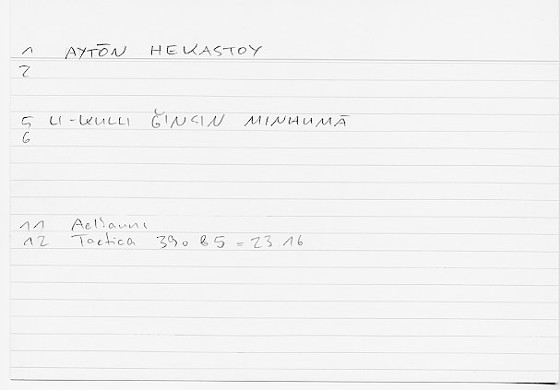 1 AYTŌN HEKASTOY
2
5 LI-KULLI ǦINSIN MINHUMĀ
6
11 Aelianni
12 Tactica 39. 85 = 23 16